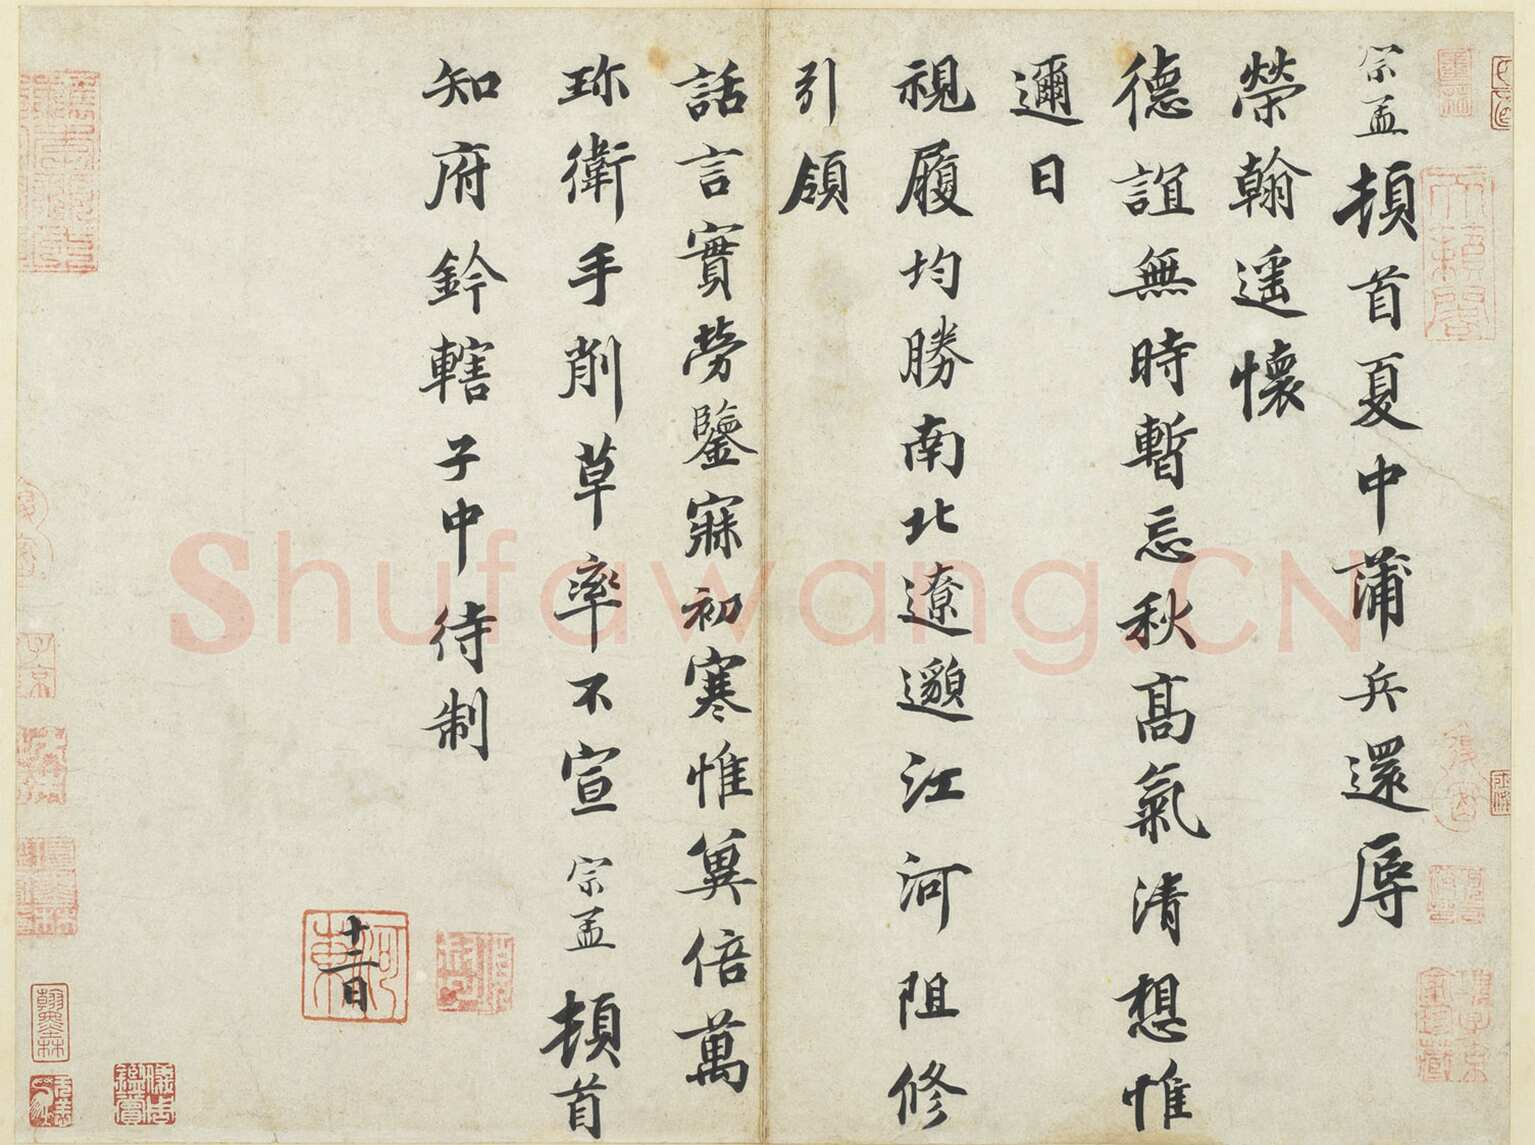 宗孟頓首夏中蒲兵還辱
榮翰遥懷
德誼無時暫忘秋髙氣清想惟
邇日
視履均勝南北遼邈江河阻修
引領
話言實勞鑒寐初寒惟兾倍萬
珎衛手削草率不宣宗孟頓首
知府鈐轄子中待制
十二日
Shufawang.CN
天籟閣
翰墨林